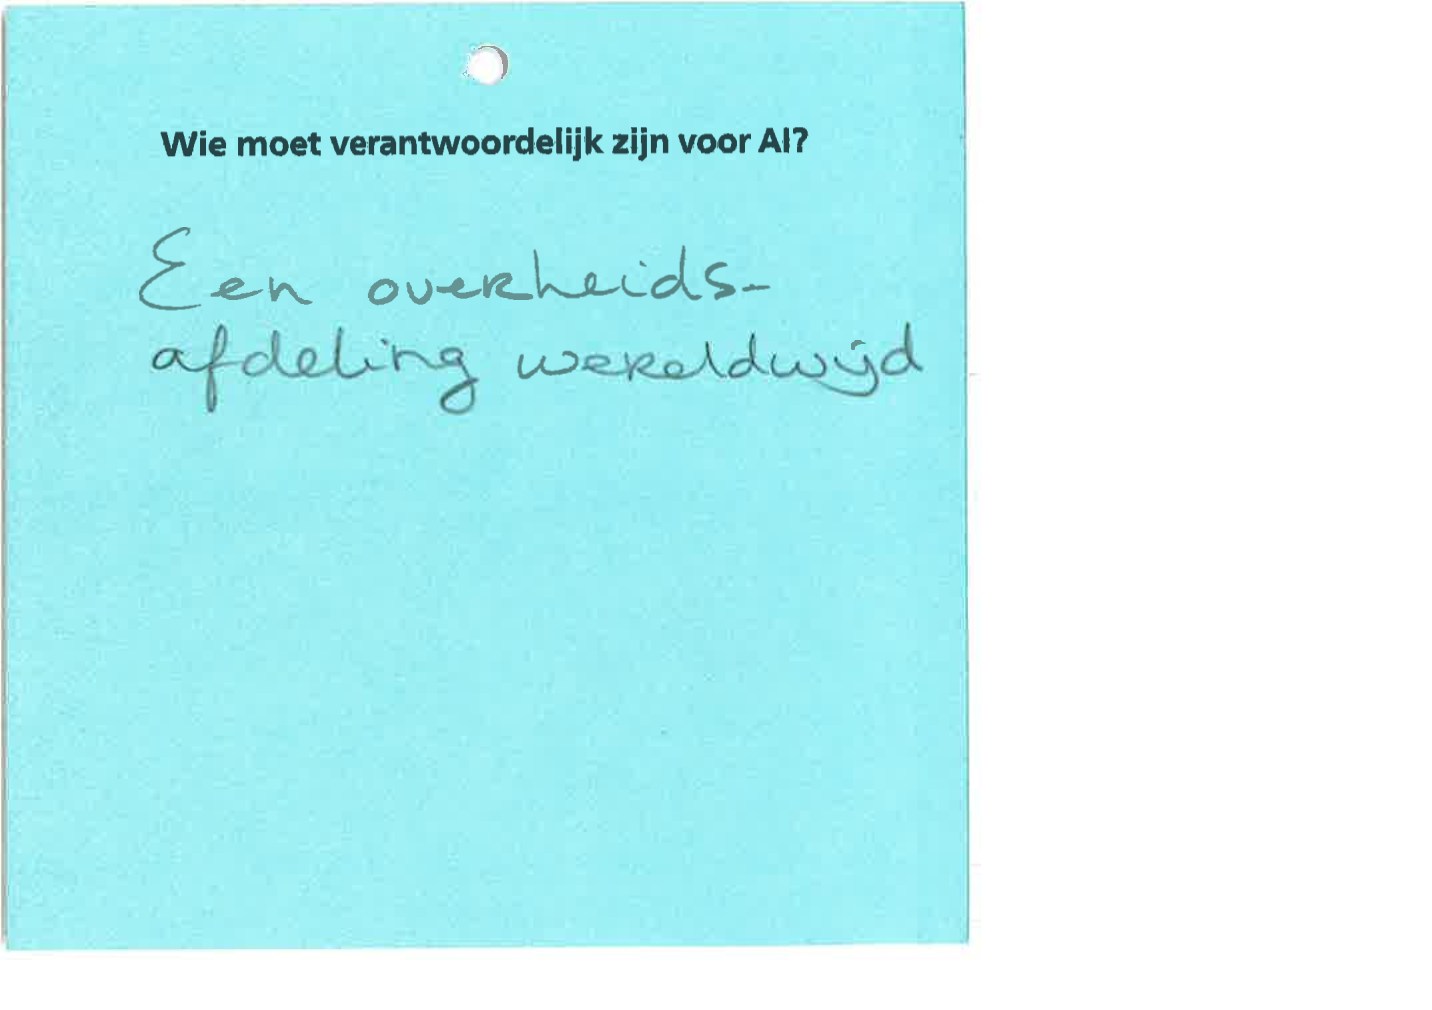 Wie moet verantwoordelijk zijn voor AI?
Een overheids-
afdeling wereldwijd